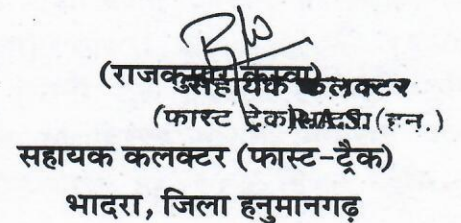 (राजकुमार कस्वा)
सहायक कलक्टर
(फास्ट ट्रेक) भादरा (हन.)
R.A.S.
सहायक कलक्टर (फास्ट-ट्रैक)
भादरा, जिला हनुमानगढ़